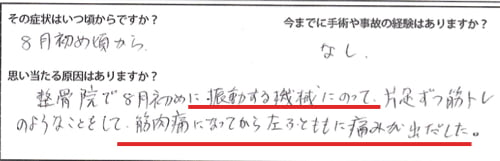 その症状はいつ頃からですか？ 今までに手術や事故の経験はありますか？
8月初め頃から. なし.
思い当たる原因はありますか？
整骨院で8月初めに振動する機械にのって. 片足ずつ筋トレ
のようなことをして. 筋肉痛になってから左ふとももに痛みが出だした。